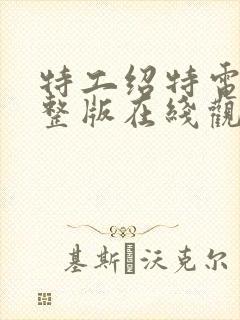 特工绍特電
整版在綫觀
基斯 沃克尔